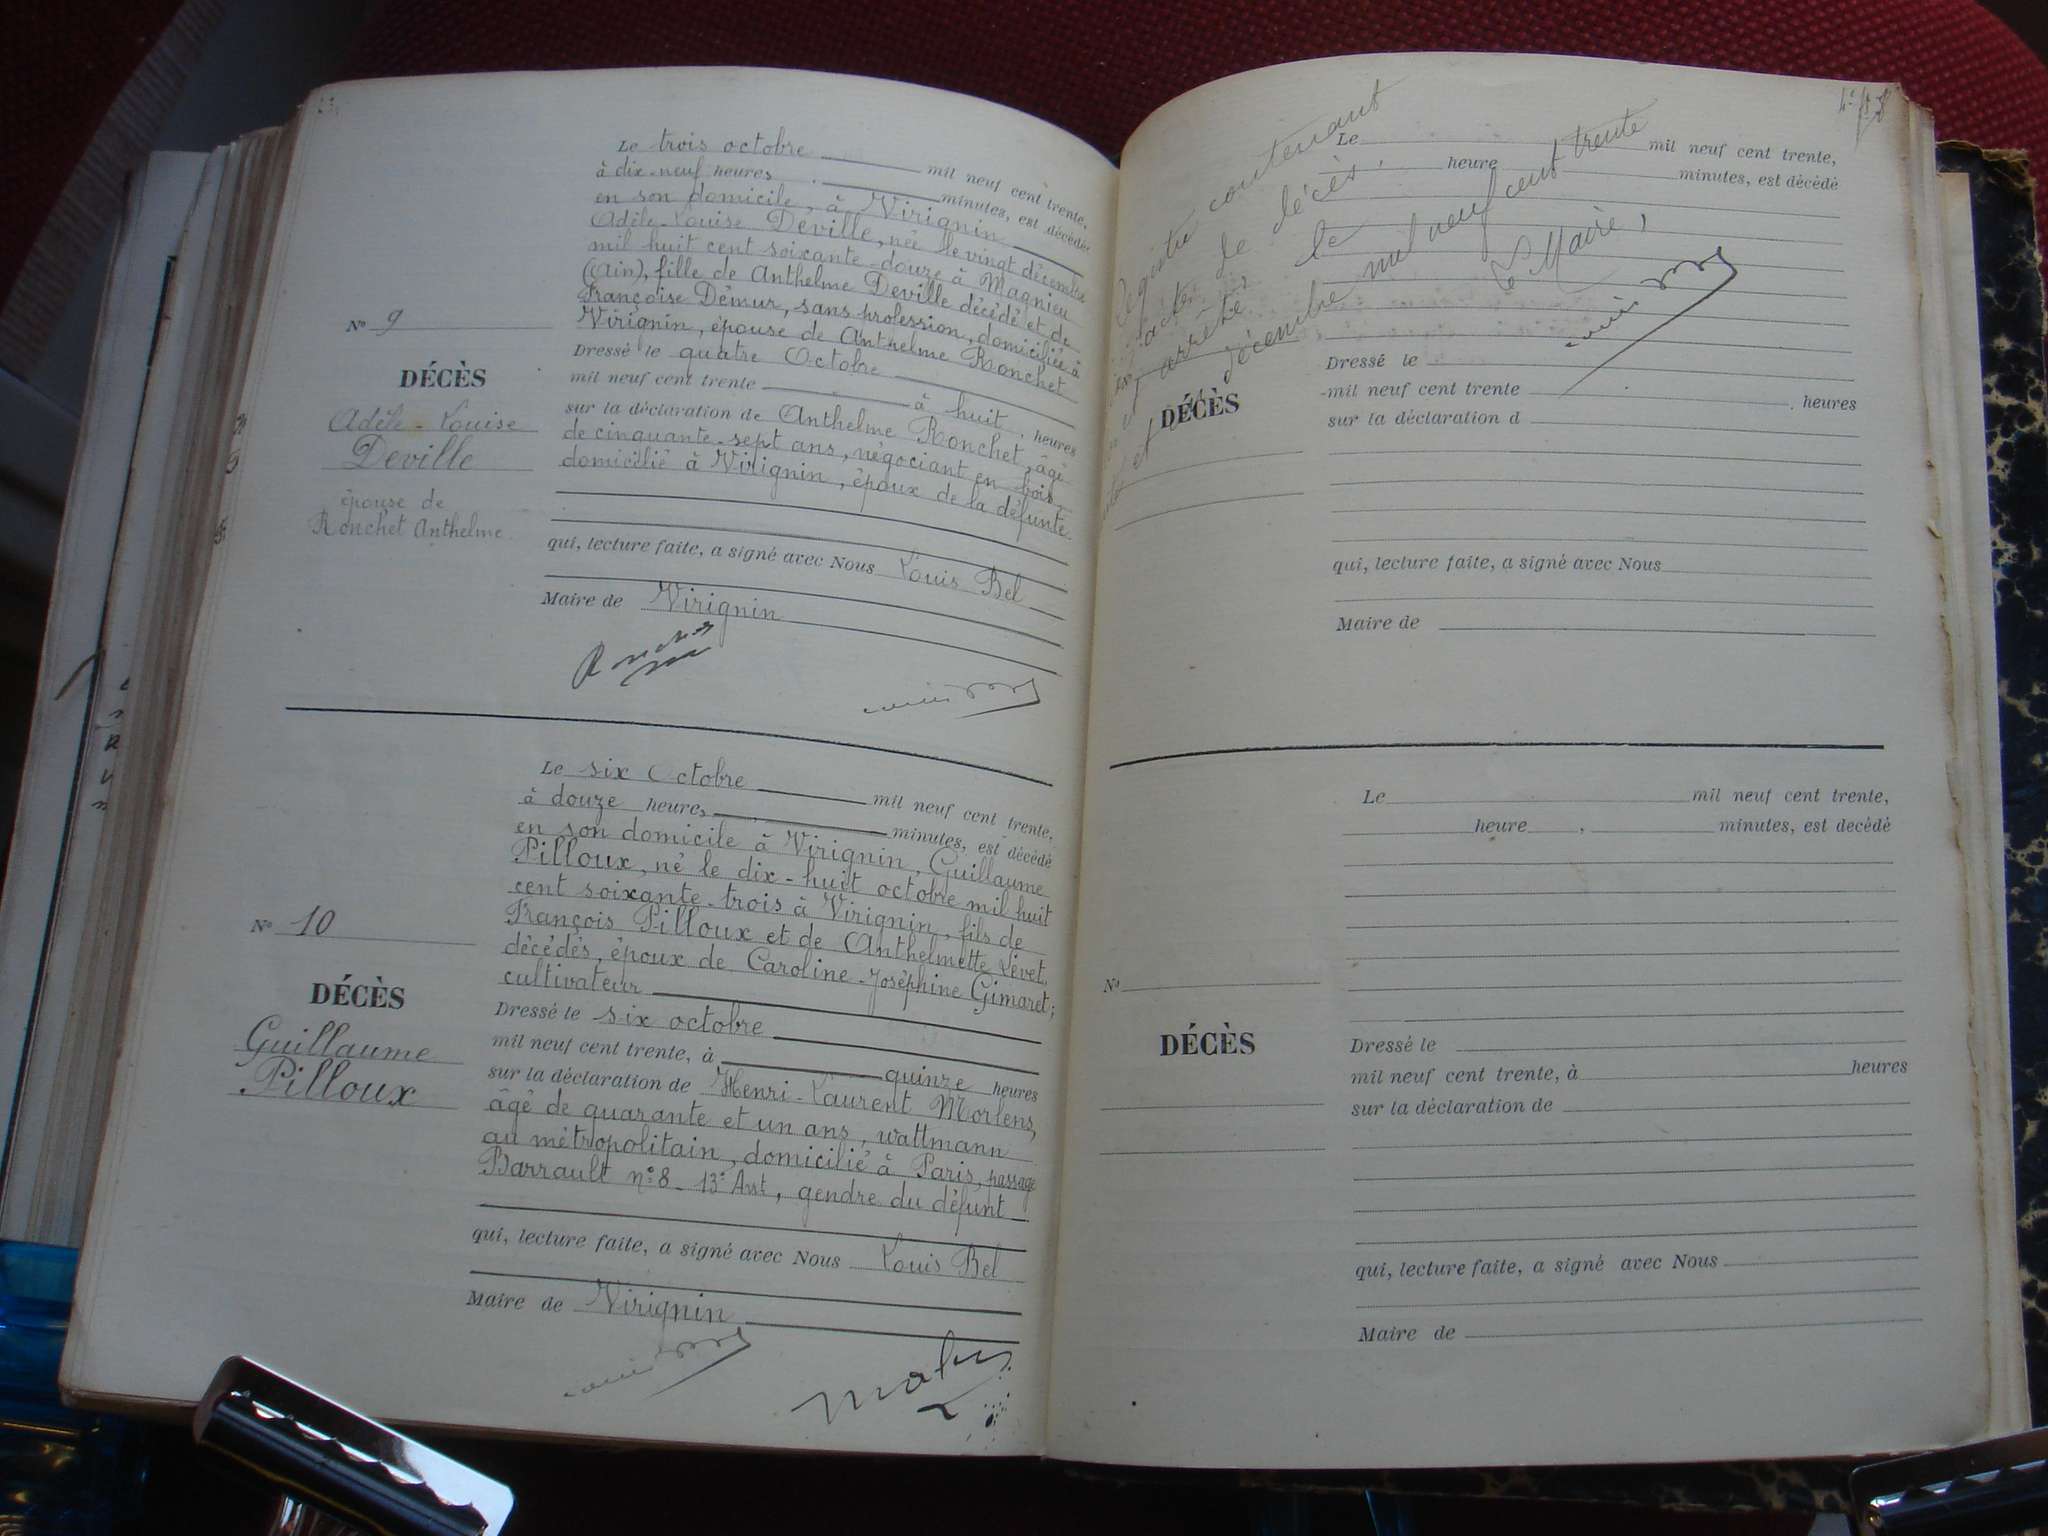 Le trois octobre mil neuf cent trente,
à dix-neuf heures, minutes, est décédée
en son domicile, à Virignin
Adèle-Louise Deville, née le vingt décembre
mil huit cent soixante-douze à Magnieu
(Ain), fille de Anthelme Deville décédé et de
Françoise Démur, sans profession, domiciliée à
Virignin, épouse de Anthelme Ronchet
Dressé le quatre Octobre
mil neuf cent trente à huit heures
sur la déclaration de Anthelme Ronchet, âgé
de cinquante-sept ans, négociant en bois,
domicilié à Virignin, époux de la défunte
qui, lecture faite, a signé avec Nous Louis Bel
Maire de Virignin
No 9
DÉCÈS
Adèle-Louise
Deville
épouse de
Ronchet Anthelme
Le six Octobre mil neuf cent trente,
à douze heures, minutes, est décédé
en son domicile à Virignin, Guillaume
Pilloux, né le dix-huit octobre mil huit
cent soixante-trois à Virignin, fils de
François Pilloux et de Anthelmette Levet,
décédés, époux de Caroline-Joséphine Gimaret;
cultivateur
Dressé le six octobre
mil neuf cent trente, à quinze heures
sur la déclaration de Henri-Laurent Morlens,
âgé de quarante et un ans, wattmann
au métropolitain, domicilié à Paris, passage
Barrault n° 8 - 13e Arrt, gendre du défunt
qui, lecture faite, a signé avec Nous Louis Bel
Maire de Virignin
No 10
DÉCÈS
Guillaume
Pilloux
registre contenant
actes de décès,
arrêté le
décembre mil neuf cent trente
Le Maire,
Le mil neuf cent trente,
heure minutes, est décédé
DÉCÈS
Dressé le
mil neuf cent trente heures
sur la déclaration d
qui, lecture faite, a signé avec Nous
Maire de
Le mil neuf cent trente,
heure , minutes, est décédé
No
DÉCÈS
Dressé le
mil neuf cent trente, à heures
sur la déclaration de
qui, lecture faite, a signé avec Nous
Maire de